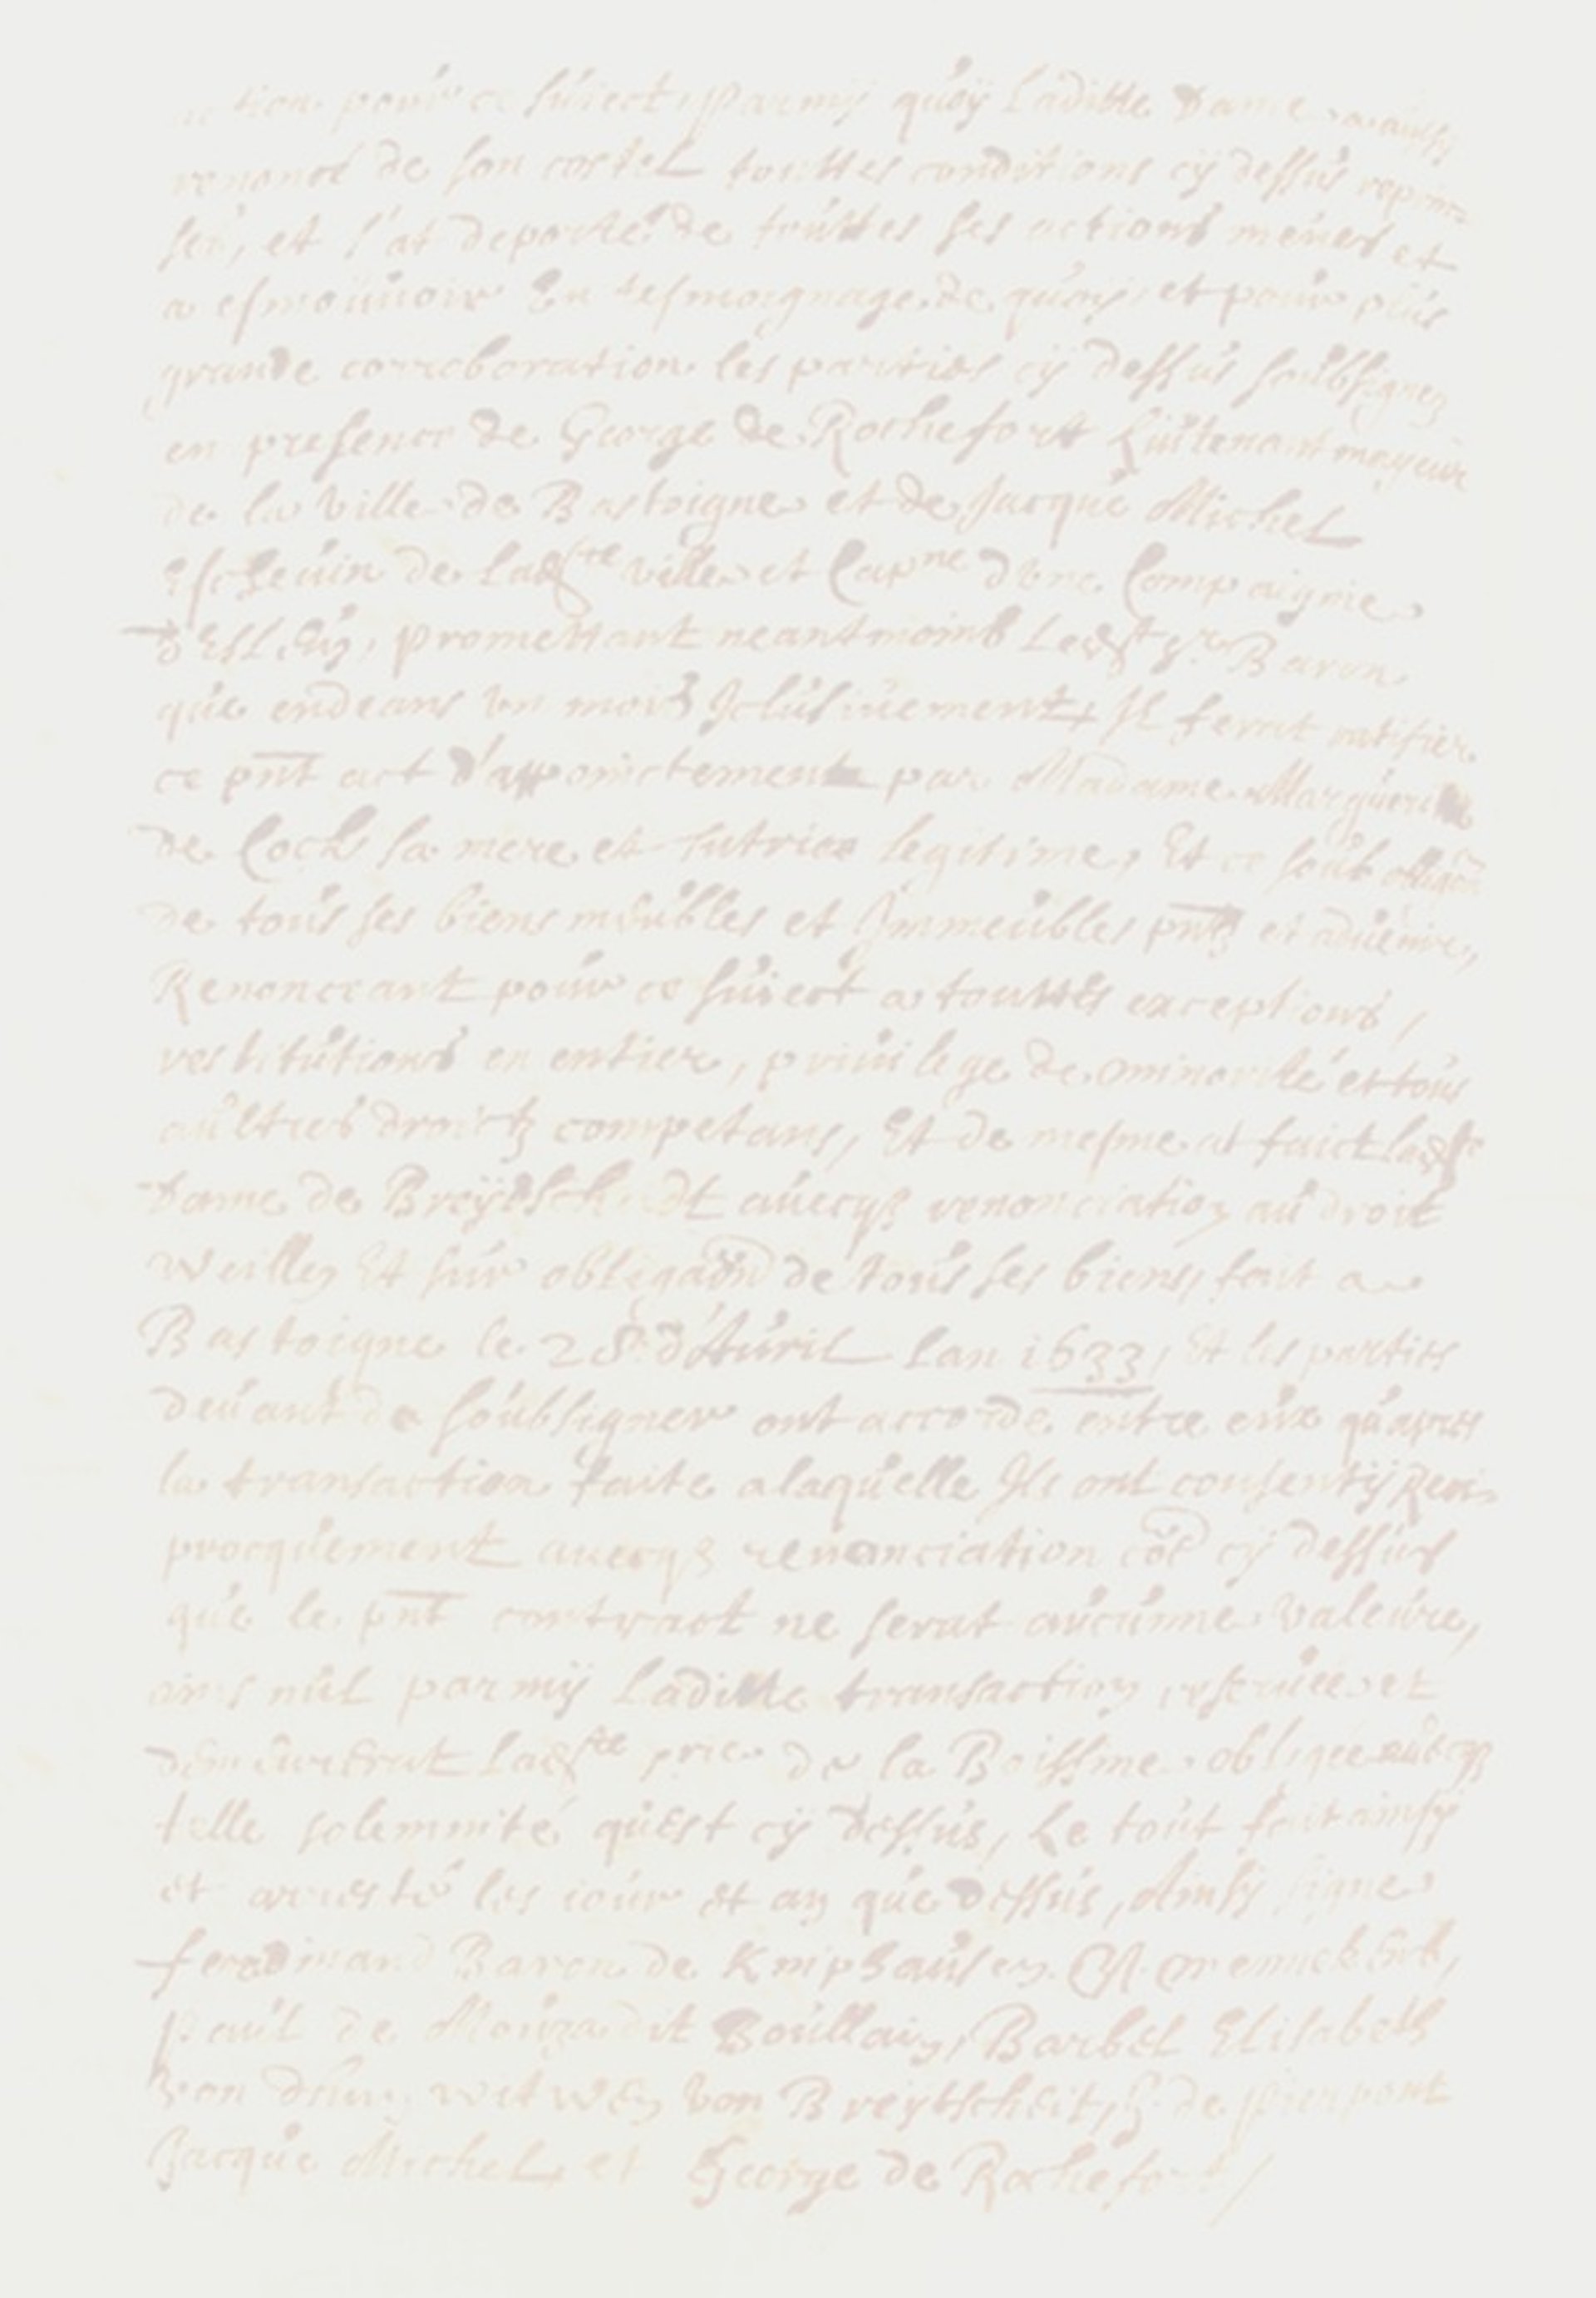 tion pour ce suiect, Parmÿ quoÿ Laditte Dame a aussÿ
renoncé de son costel touttes conditions cÿ dessus reprin-
ses, et s'at deporté de touttes ses actions menés et
a esmouuoir En tesmoignage de quoy, et pour plus
grande corroboration les parties cÿ dessus soubsignez
en presence de George de Rochefort Luitenant mayeur
de la ville de Bastoigne et de Jacque Michel
Escheuin de Ladte ville et Capne d'vne Compaignie
promettant neantmoins Ledt Sr Baron
que endeans vn mois Jclusiuement, Jl ferat ratifier
ce pnt act d'appoinctement par Madame Marguerite
de Coch sa mere et tutrice legitime, Et ce soub obligaon
de tous ses biens meubles et Jmmeubles pntz et aduenire,
Renonceant pour ce suiect a touttes exceptions,
restitutions en entier, priuilege de minorité et tous
aultres droictz competans, Et de mesme at faict ladte
Dame de Breÿtscheidt auecqz renonciation au droit
Weillen Et sur obligaon de tous ses biens, fait a
Bastoigne le 28e d'Auril Lan 1633, Et les parties
deuant de soubsigner ont accorde entre eux qu'apres
la transaction faite a laquelle Jls ont consentÿ Reci-
procquement auecqz renonciation coe cÿ dessus
que le pnt contract ne serat aucunne valeure,
ains nul parmÿ Laditte transaction, reseruée et
demeurerat Ladte de la Boissme obligée auecqz
telle solemnité qu'est cÿ dessus, Le tout fait ainsÿ
et arresté les iour et an que dessus, Ainsÿ signe
ferdinand Baron de Kniphausen
Paul de Mouza dit Boullain, Barbel Elisabeth
von witwen von Breytscheit, G. de Pierpont
Jacque Michel et George de Rochefort /